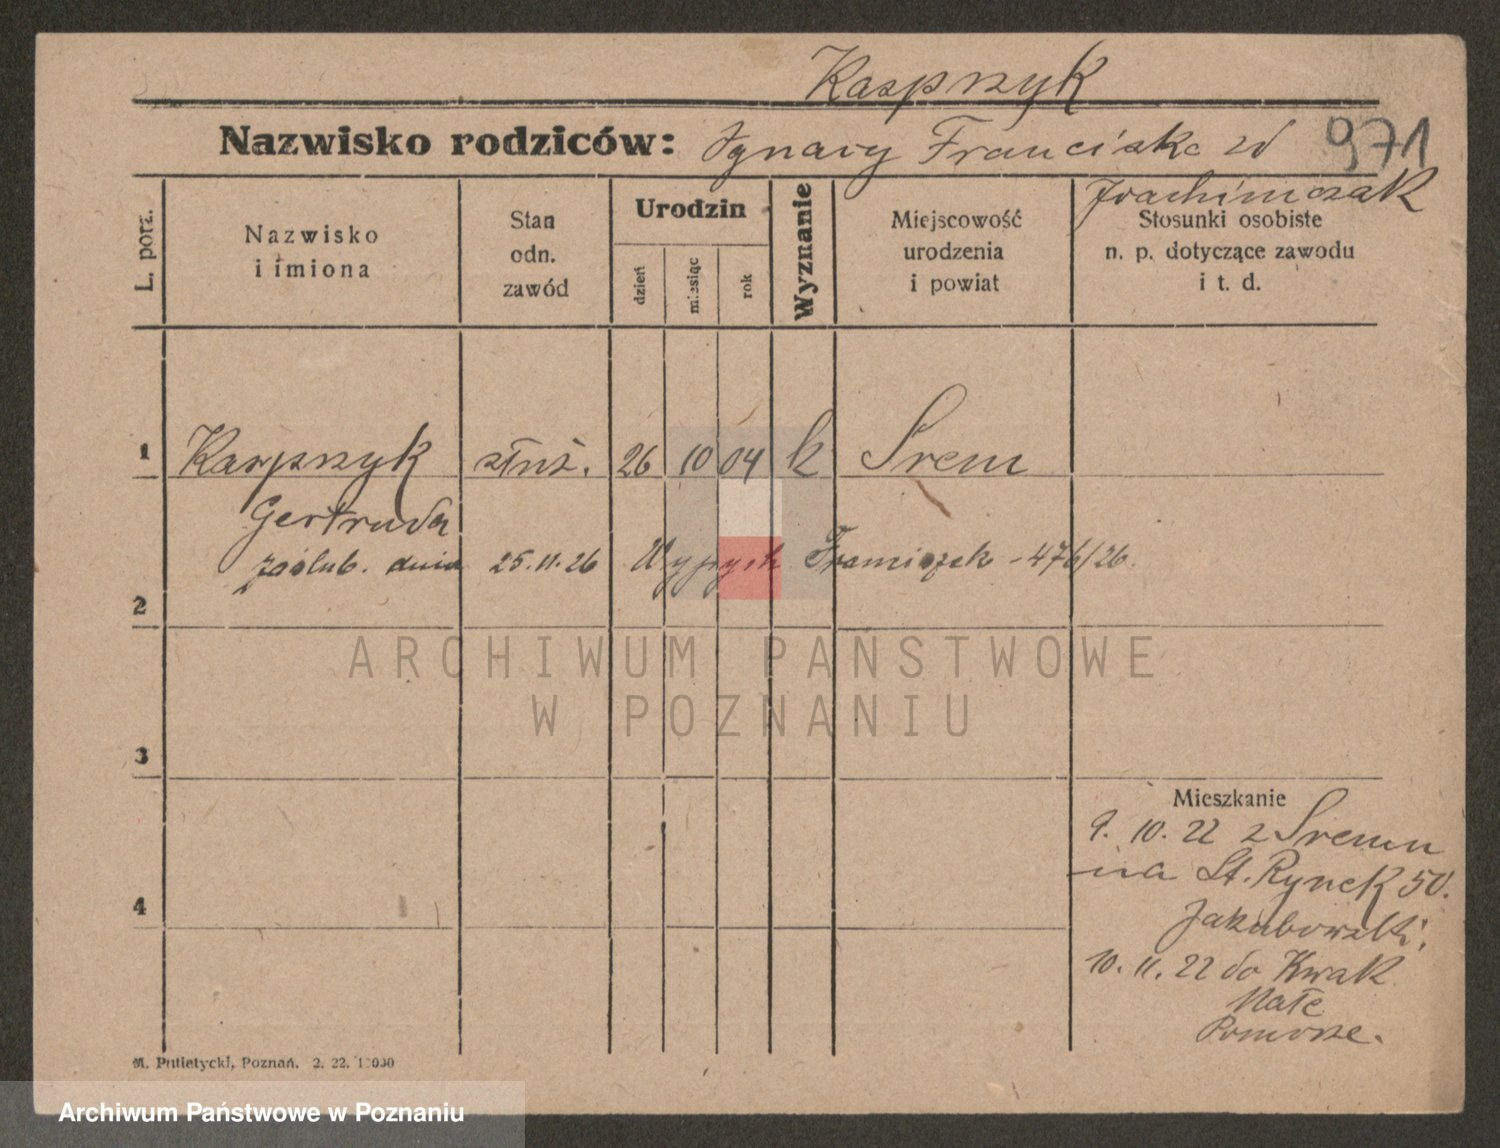 Kasprzyk
Nazwisko rodziców: Ignacy Franciska zd 971
Joachimczak
L. porz.
Nazwisko i imiona
Stan odn. zawód
Urodzin
dzień
miesiąc
rok
Wyznanie
Miejscowość urodzenia i powiat
Stosunki osobiste n. p. dotyczące zawodu i t. d.
1 Kasprzyk służ. 26 10 04 k Śrem
Gertruda
zaślub. dnia 25.11.26 Wypych Franciszek - 476/26.
2
ARCHIWUM PAŃSTWOWE
W POZNANIU
3
Mieszkanie
9. 10. 22 z Śremu
na St. Rynek 50.
4
Jakubowski.
10. 11. 22 do Kwak
Małe
Pomorze.
M. Putiatycki, Poznań. 2. 22.
Archiwum Państwowe w Poznaniu